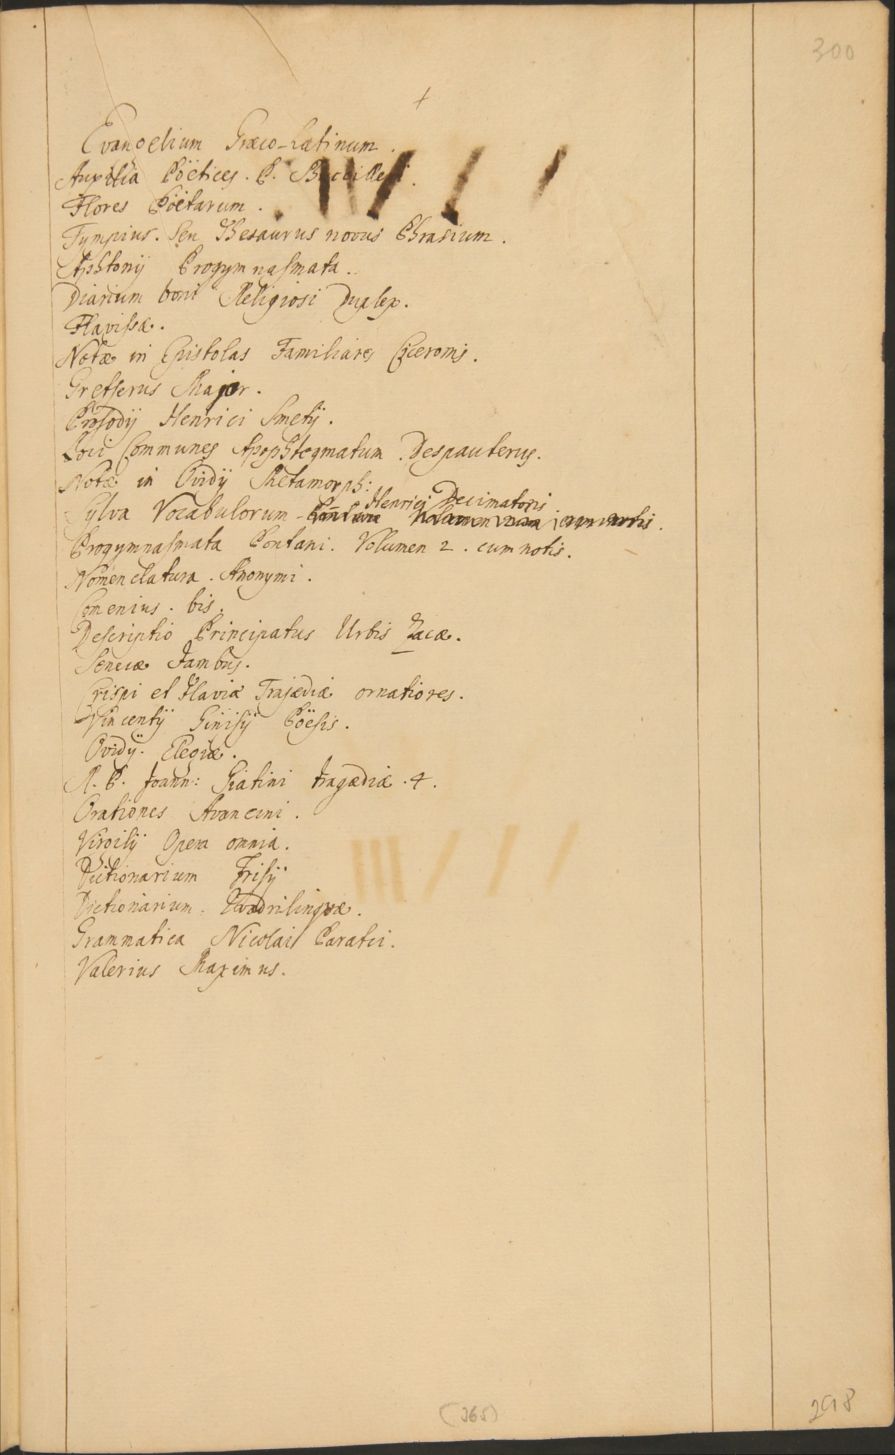 300
+
Evangelium Græco-Latinum.
Auxilia Pöetices. P.
Flores Pöetarum.
Tympius. Seu Thesaurus novus Phrasium.
Aphtonij Progymnasmata.
Diarium boni Religiosi Duplex.
Flavissæ.
Notæ in Epistolas Familiares Ciceronis.
Gretserus Major.
Prosodij Henrici Smetij.
Loci Communes Apophtegmatum. Despauterus.
Notæ in Ovidij Metamorph:
Henrici Decimatoris
Sylva Vocabulorum
Progymnasmata Pontani. Volumen 2. cum notis.
Nomenclatura. Anonymi.
Comenius. bis.
Descriptio Principatus Urbis
Senecæ Jambus.
Crispi et Flaviæ Trajædiæ ornatiores.
Vincentij Ginisij Pöesis.
Ovidij. Elegiæ.
R. P. Joann: Giatini tragædiæ. 4.
Orationes Avancini.
Virgilij Opera omnia.
Dictionarium Frisij
Dictionarium. Quadrilinguæ.
Grammatica Nicolai Paratei.
Valerius Maximus.
(365)
298